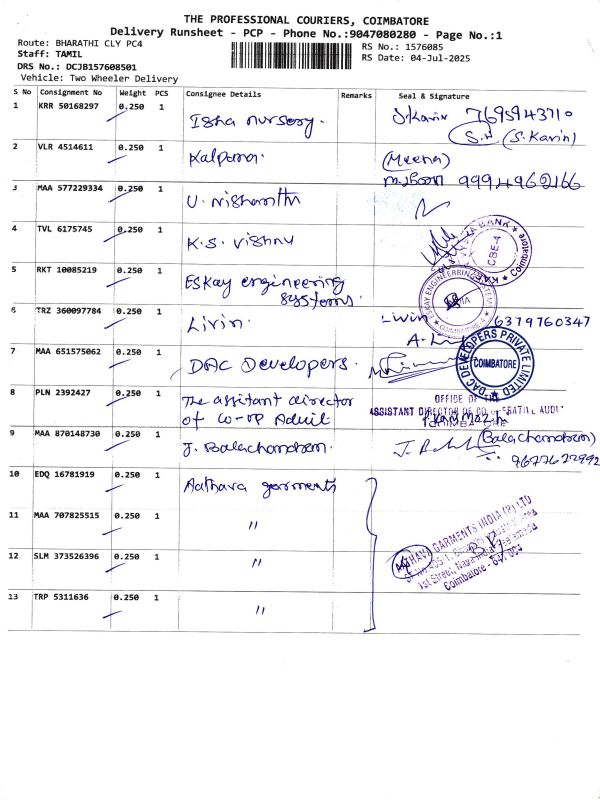 THE PROFESSIONAL COURIERS, COIMBATORE
Delivery Runsheet - PCP - Phone No.:9047080280 - Page No.:1
Route: BHARATHI CLY PC4
RS No.: 1576085
Staff: TAMIL
RS Date: 04-Jul-2025
DRS No.: DCJB157608501
Vehicle: Two Wheeler Delivery
S No Consignment No Weight PCS Consignee Details Remarks Seal & Signature
1 KRR 50168297 0.250 1 Isha nursery. 7695943710
(S.Kavin)
2 VLR 4514611 0.250 1 Kalpana. (Meena)
9994962166
3 MAA 577229334 0.250 1 U. Nishanthi
4 TVL 6175745 0.250 1 K.S. Vishnu
BANK
CBE-4
Coimbatore
5 RKT 10085219 0.250 1 Eskay engineering
systems.
ESKAY ENGINEERING SYSTEMS
COIMBATORE-4
6 TRZ 360097784 0.250 1 Livin. Livin 6379760347
7 MAA 651575062 0.250 1 DAC Developers.
DAC DEVELOPERS PRIVATE LIMITED
COIMBATORE
8 PLN 2392427 0.250 1 The assitant director
of co-op Audit
OFFICE OF THE
ASSISTANT DIRECTOR OF CO-OPERATIVE AUDIT
9 MAA 870148730 0.250 1 J. Balachandren. (Balachandren)
9677622992
10 EDQ 16781919 0.250 1 Aathava garments
11 MAA 707825515 0.250 1 "
AATHAVA GARMENTS INDIA (P) LTD
1st Street, Nava India
Coimbatore - 641 004
12 SLM 373526396 0.250 1 "
13 TRP 5311636 0.250 1 "